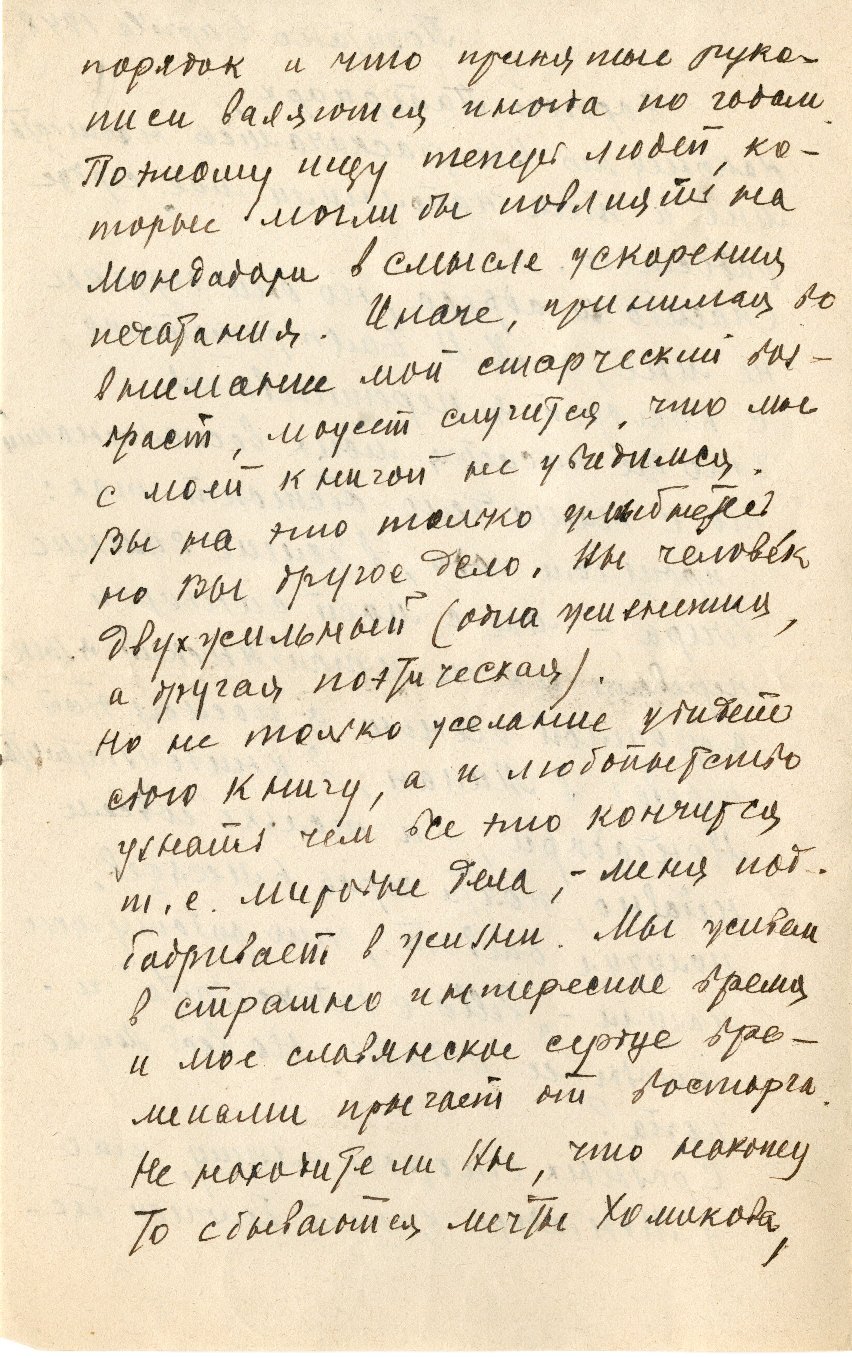 порядок и что принятые руко-
писи валяются иногда по годам.
Поэтому ищу теперь людей, ко-
торые могли бы повлиять на
Мондадори в смысле ускорения
печатания. Иначе, принимая во
внимание мой старческий воз-
раст, может случится, что мы
с моей книгой не увидимся.
Вы на это только улыбнетесь,
но Вы другое дело. Вы человек
двухжильный (одна жизненная,
а другая поэтическая).
Но не только желание увидеть
свою книгу, а и любопытство
узнать чем все это кончится
т. е. мировые дела, – меня под-
бадривает в жизни. Мы живем
в страшно интересное время
и мое славянское сердце вре-
менами прыгает от восторга.
Не находите ли Вы, что наконец
то сбываются мечты Хомякова,